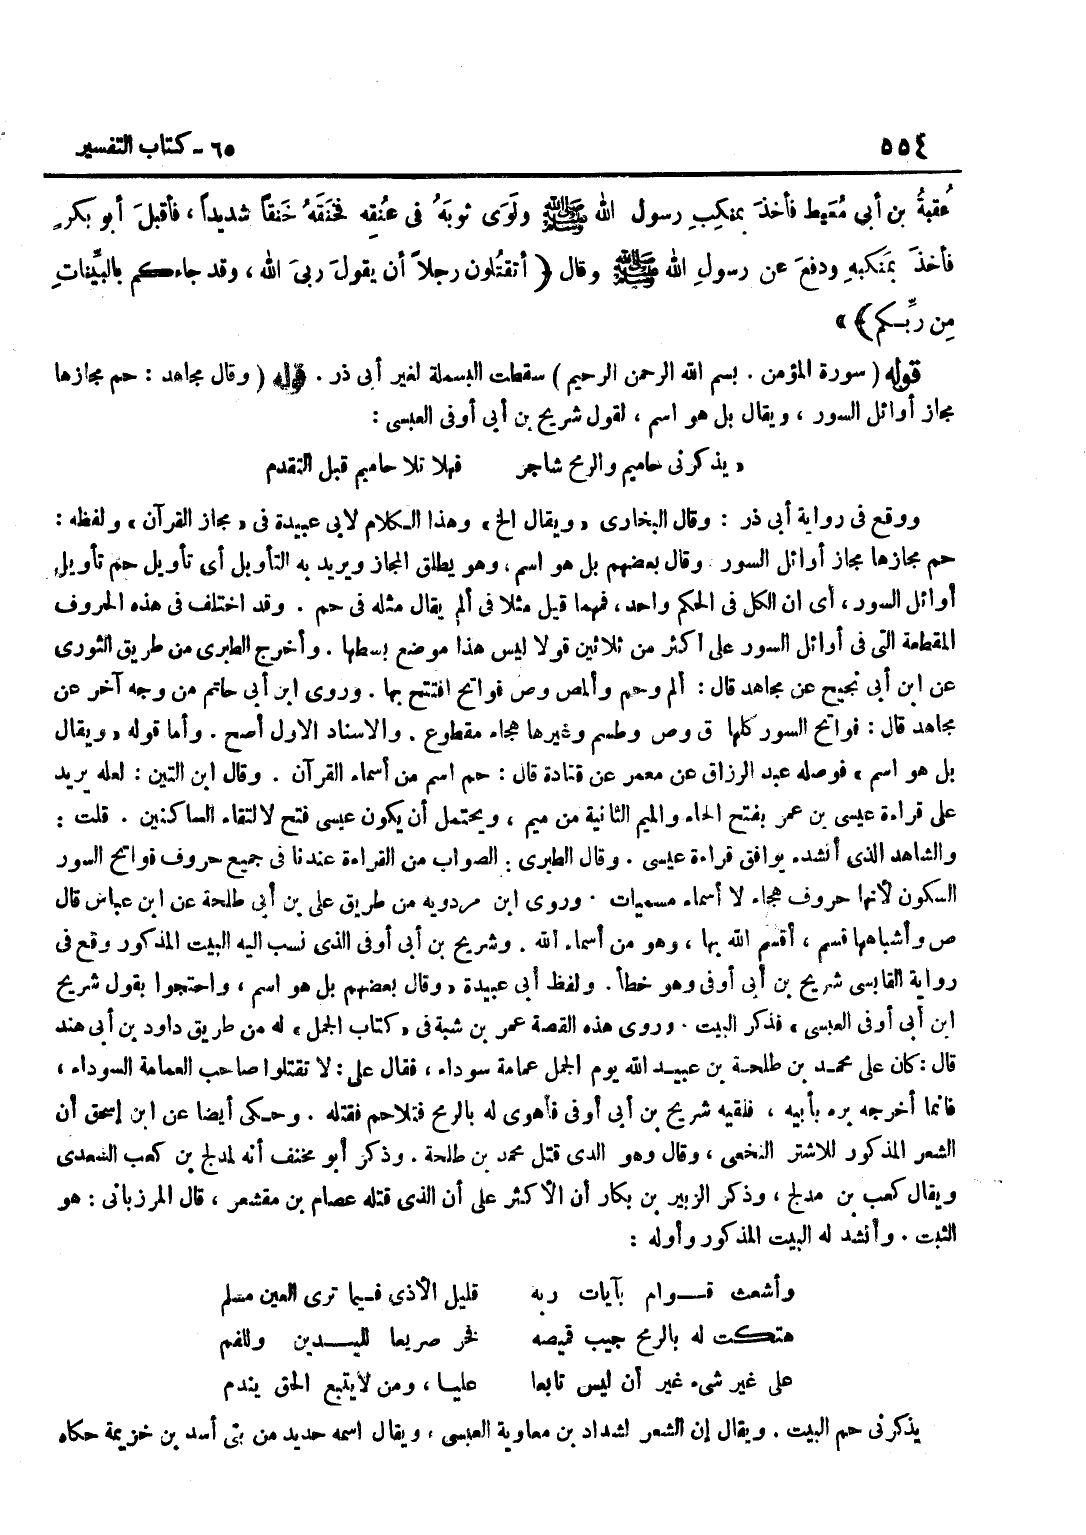 ٥٥٤
٦٥ - كتاب التفسير
عُقبةُ بن أبي مُعَيط فأخذَ بمنكِبِ رسول الله ﷺ ولَوَى ثوبَهُ في عنُقِه فخنَقَهُ خَنقاً شديداً ، فأقبلَ أبو بكرٍ
فأخذَ بمَنكبهِ ودفعَ عن رسولِ الله ﷺ وقال ﴿ أتقتُلون رجلاً أن يقولَ ربىَ الله ، وقد جاءكم بالبيِّناتِ
مِن ربِّكم ﴾ »
قوله ( سورة المؤمن . بسم الله الرحمن الرحيم ) سقطت البسملة لغير أبى ذر . قوله ( وقال مجاهد : حم مجازها
مجاز أوائل السور ، ويقال بل هو اسم ، لقول شريح بن أبى أوفى العبسى :
« يذكرنى حاميم والرمح شاجر فهلا تلا حاميم قبل التقدم
ووقع فى رواية أبى ذر : وقال البخارى « ويقال الخ » وهذا الكلام لابى عبيدة فى « مجاز القرآن » ولفظه :
حم مجازها مجاز أوائل السور وقال بعضهم بل هو اسم ، وهو يطلق المجاز ويريد به التأويل أى تأويل حم تأويل
أوائل السور ، أى ان الكل فى الحكم واحد ، فمهما قيل مثلا فى ألم يقال مثله فى حم . وقد اختلف فى هذه الحروف
المقطعة التى فى أوائل السور على أكثر من ثلاثين قولا ليس هذا موضع بسطها . وأخرج الطبرى من طريق الثورى
عن ابن أبى نجيح عن مجاهد قال : ألم وحم وألمص وص فواتح افتتح بها . وروى ابن أبى حاتم من وجه آخر عن
مجاهد قال : فواتح السور كلها ق وص وطسم وغيرها هجاء مقطوع . والاسناد الاول أصح . وأما قوله « ويقال
بل هو اسم » فوصله عبد الرزاق عن معمر عن قتادة قال : حم اسم من أسماء القرآن . وقال ابن التين : لعله يريد
على قراءة عيسى بن عمر بفتح الحاء والميم الثانية من ميم ، ويحتمل أن يكون عيسى فتح لالتقاء الساكنين . قلت :
والشاهد الذى أنشده يوافق قراءة عيسى . وقال الطبرى : الصواب من القراءة عندنا فى جميع حروف فواتح السور
السكون لأنها حروف هجاء لا أسماء مسميات . وروى ابن مردويه من طريق على بن أبى طلحة عن ابن عباس قال
ص وأشباهها قسم ، أقسم الله بها ، وهو من أسماء الله . وشريح بن أبى أوفى الذى نسب اليه البيت المذكور وقع فى
رواية القابسى شريح بن أبى أوفى وهو خطأ . ولفظ أبى عبيدة « وقال بعضهم بل هو اسم ، واحتجوا بقول شريح
ابن أبى أوفى العبسى » فذكر البيت . وروى هذه القصة عمر بن شبة فى « كتاب الجمل » له من طريق داود بن أبى هند
قال : كان على محمد بن طلحة بن عبيد الله يوم الجمل عمامة سوداء ، فقال على : لا تقتلوا صاحب العمامة السوداء ،
فانما أخرجه بره بأبيه ، فلقيه شريح بن أبى أوفى فأهوى له بالرمح فتلاحم فقتله . وحكى أيضا عن ابن إسحق أن
الشعر المذكور للاشتر النخعى ، وقال وهو الذى قتل محمد بن طلحة . وذكر أبو مخنف أنه لمدلج بن كعب السعدى
ويقال كعب بن مدلج ، وذكر الزبير بن بكار أن الأكثر على أن الذى قتله عصام بن مقشعر ، قال المرزبانى : هو
الثبت . وأنشد له البيت المذكور وأوله :
وأشعث قوام بآيات ربه قليل الأذى فيما ترى العين مسلم
هتكت له بالرمح جيب قميصه فخر صريعا لليدين وللفم
على غير شىء غير أن ليس تابعا عليا ، ومن لايتبع الحق يندم
يذكرنى حم البيت . ويقال إن الشعر لشداد بن معاوية العبسى ، ويقال اسمه حديد من بنى أسد بن خزيمة حكاه